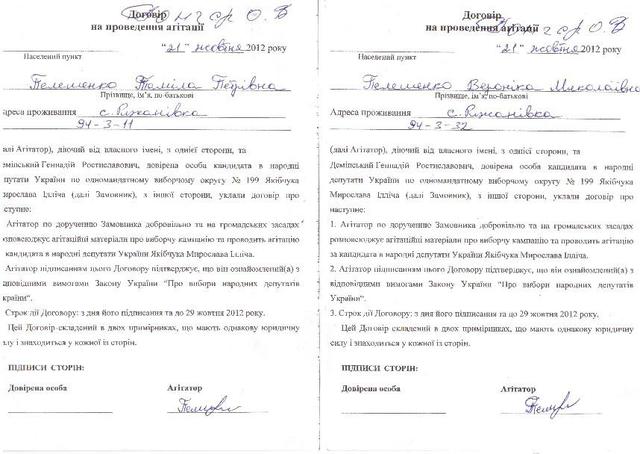 Договір
на проведення агітації
"21" жовтня 2012 року
Населений пункт
Пелешенко Таміла Петрівна
Прізвище, ім'я, по-батькові
адреса проживання с. Рижанівка
94-3-11
алі Агітатор), діючий від власного імені, з однієї сторони, та
емпіський Геннадій Ростиславович, довірена особа кандидата в народні
путати України по одномандатному виборчому округу № 199 Якібчука
ирослава Ілліча (далі Замовник), з іншої сторони, уклали договір про
ступне:
Агітатор по дорученню Замовника добровільно та на громадських засадах
озповсюджує агітаційні матеріали про виборчу кампанію та проводить агітацію
кандидата в народні депутати України Якібчука Мирослава Ілліча.
Агітатор підписанням цього Договору підтверджує, що він ознайомлений(а) з
дповідними вимогами Закону України "Про вибори народних депутатів
країни".
Строк дії Договору: з дня його підписання та до 29 жовтня 2012 року.
Цей Договір складений в двох примірниках, що мають однакову юридичну
лу і знаходиться у кожної із сторін.
ПІДПИСИ СТОРІН:
Довірена особа Агітатор
Договір
на проведення агітації
"21" жовтня 2012 року
Населений пункт
Пелешенко Вероніка Миколаївна
Прізвище, ім'я, по-батькові
Адреса проживання с. Рижанівка
94-3-32
(далі Агітатор), діючий від власного імені, з однієї сторони, та
Демпіський Геннадій Ростиславович, довірена особа кандидата в народні
депутати України по одномандатному виборчому округу № 199 Якібчука
Мирослава Ілліча (далі Замовник), з іншої сторони, уклали договір про
наступне:
1. Агітатор по дорученню Замовника добровільно та на громадських засадах
розповсюджує агітаційні матеріали про виборчу кампанію та проводить агітацію
за кандидата в народні депутати України Якібчука Мирослава Ілліча.
2. Агітатор підписанням цього Договору підтверджує, що він ознайомлений(а) з
відповідними вимогами Закону України "Про вибори народних депутатів
України".
3. Строк дії Договору: з дня його підписання та до 29 жовтня 2012 року.
Цей Договір складений в двох примірниках, що мають однакову юридичну
силу і знаходиться у кожної із сторін.
ПІДПИСИ СТОРІН:
Довірена особа Агітатор